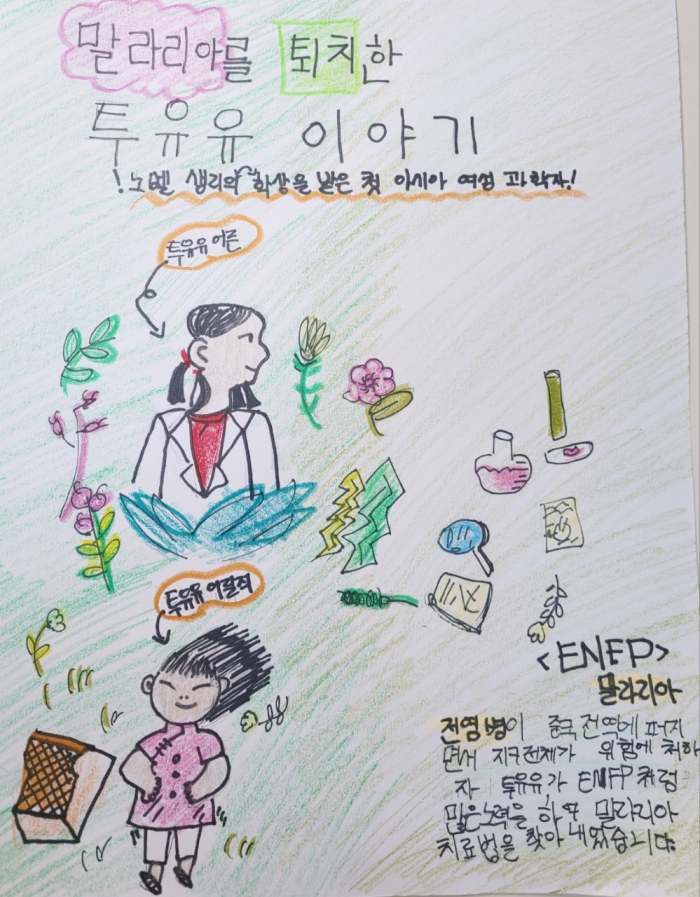 말라리아를 퇴치한
투유유 이야기
!노벨 생리의학화상을 받은 첫 아시아 여성 과학자!
투유유 어른
투유유 어릴적
<ENFP>
말라리아
전염병이 중국 전역에 퍼지
면서 지구전체가 위험에 처하
자 투유유가 ENFP처럼
많은노력을 하며 말라리아
치료법을 찾아 내었습니다